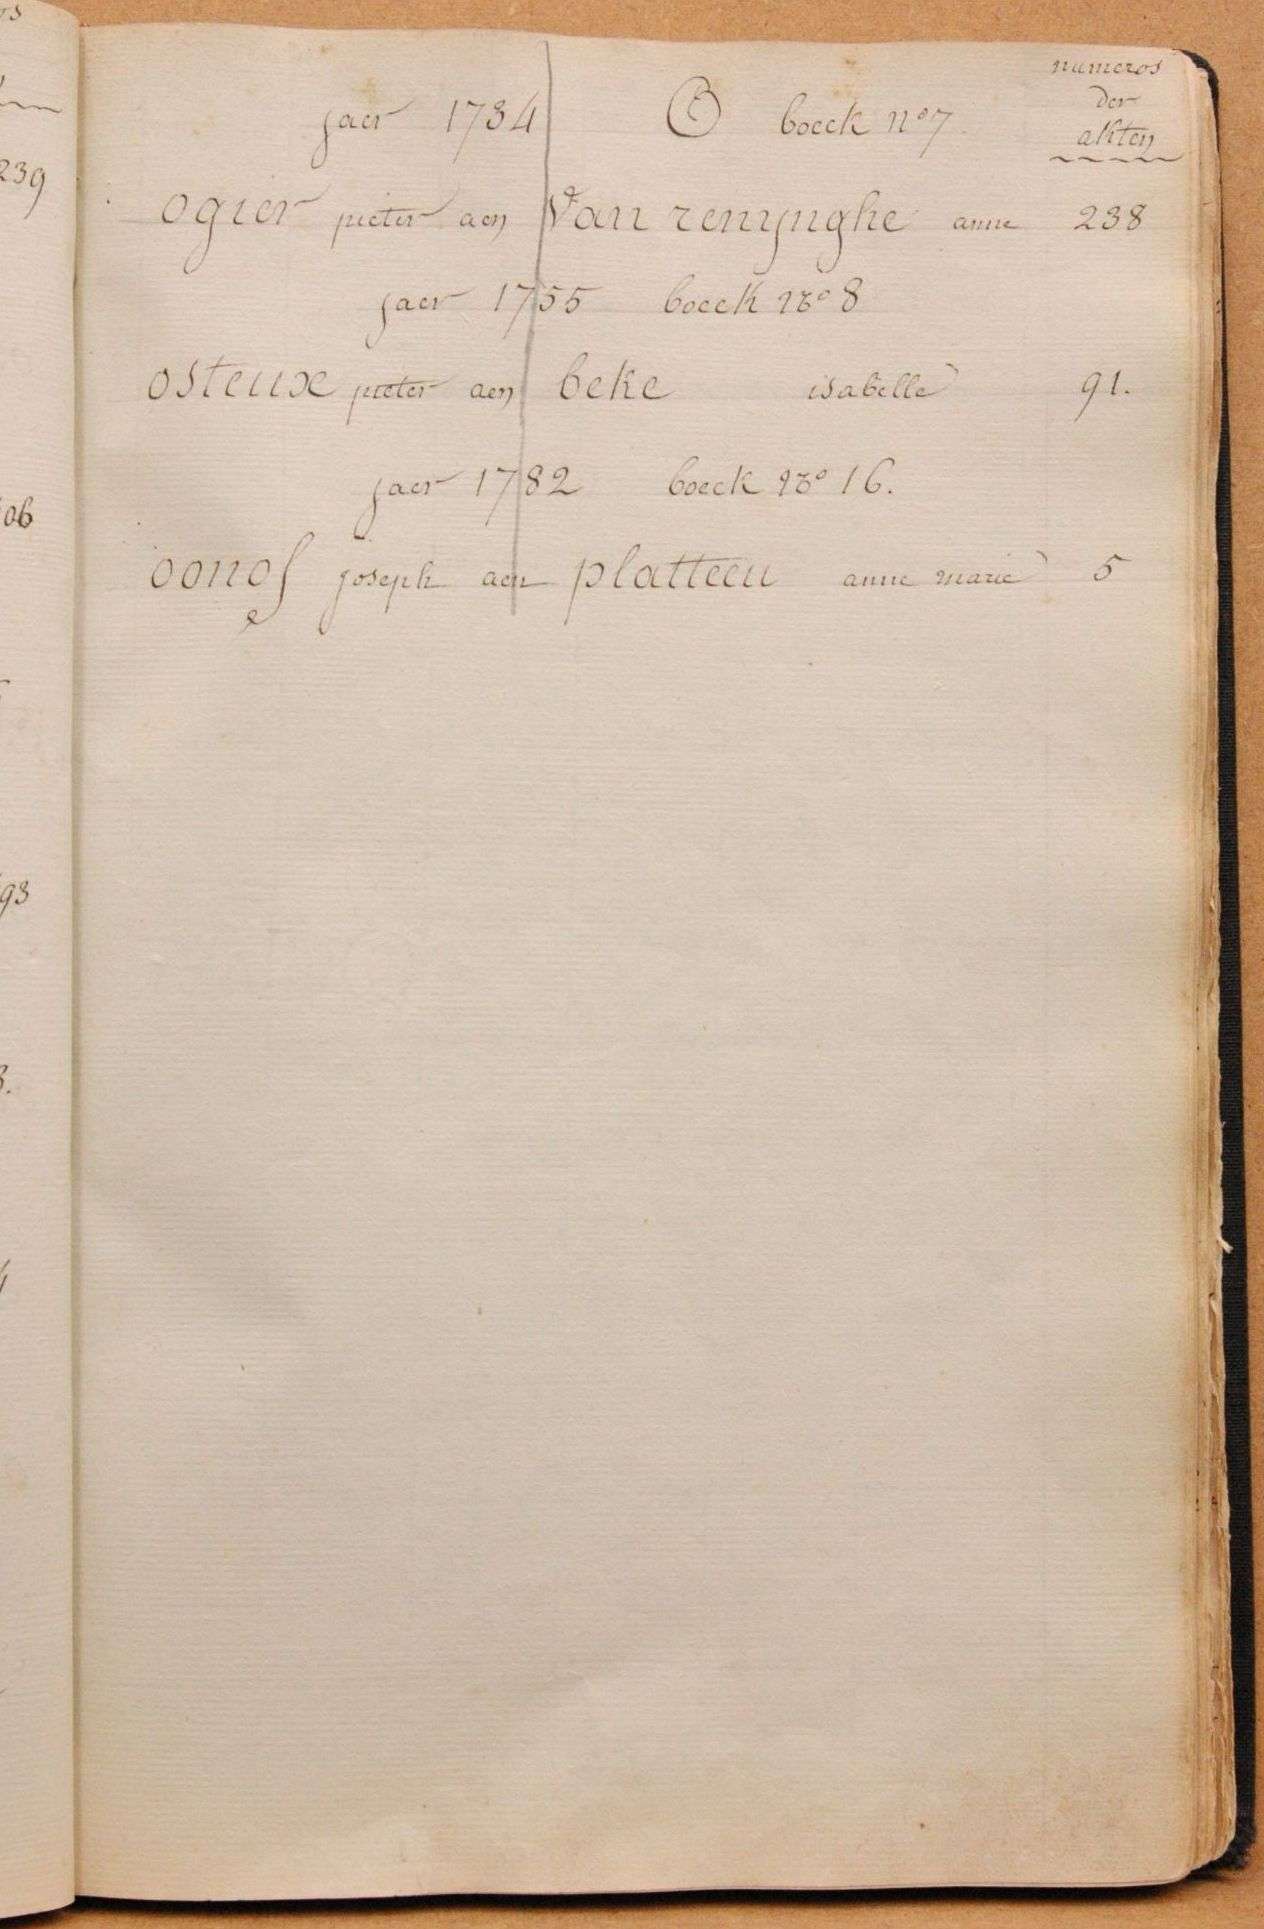 numeros
der
akten
jaer 1734 O boeck n° 7
ogier pieter aen Van renynghe anne 238
jaer 1755 boeck no 8
osteuxe pieter aen beke isabelle 91.
jaer 1782 boeck no 16.
oonos joseph aen platteeu anne marie 5
239
06
93